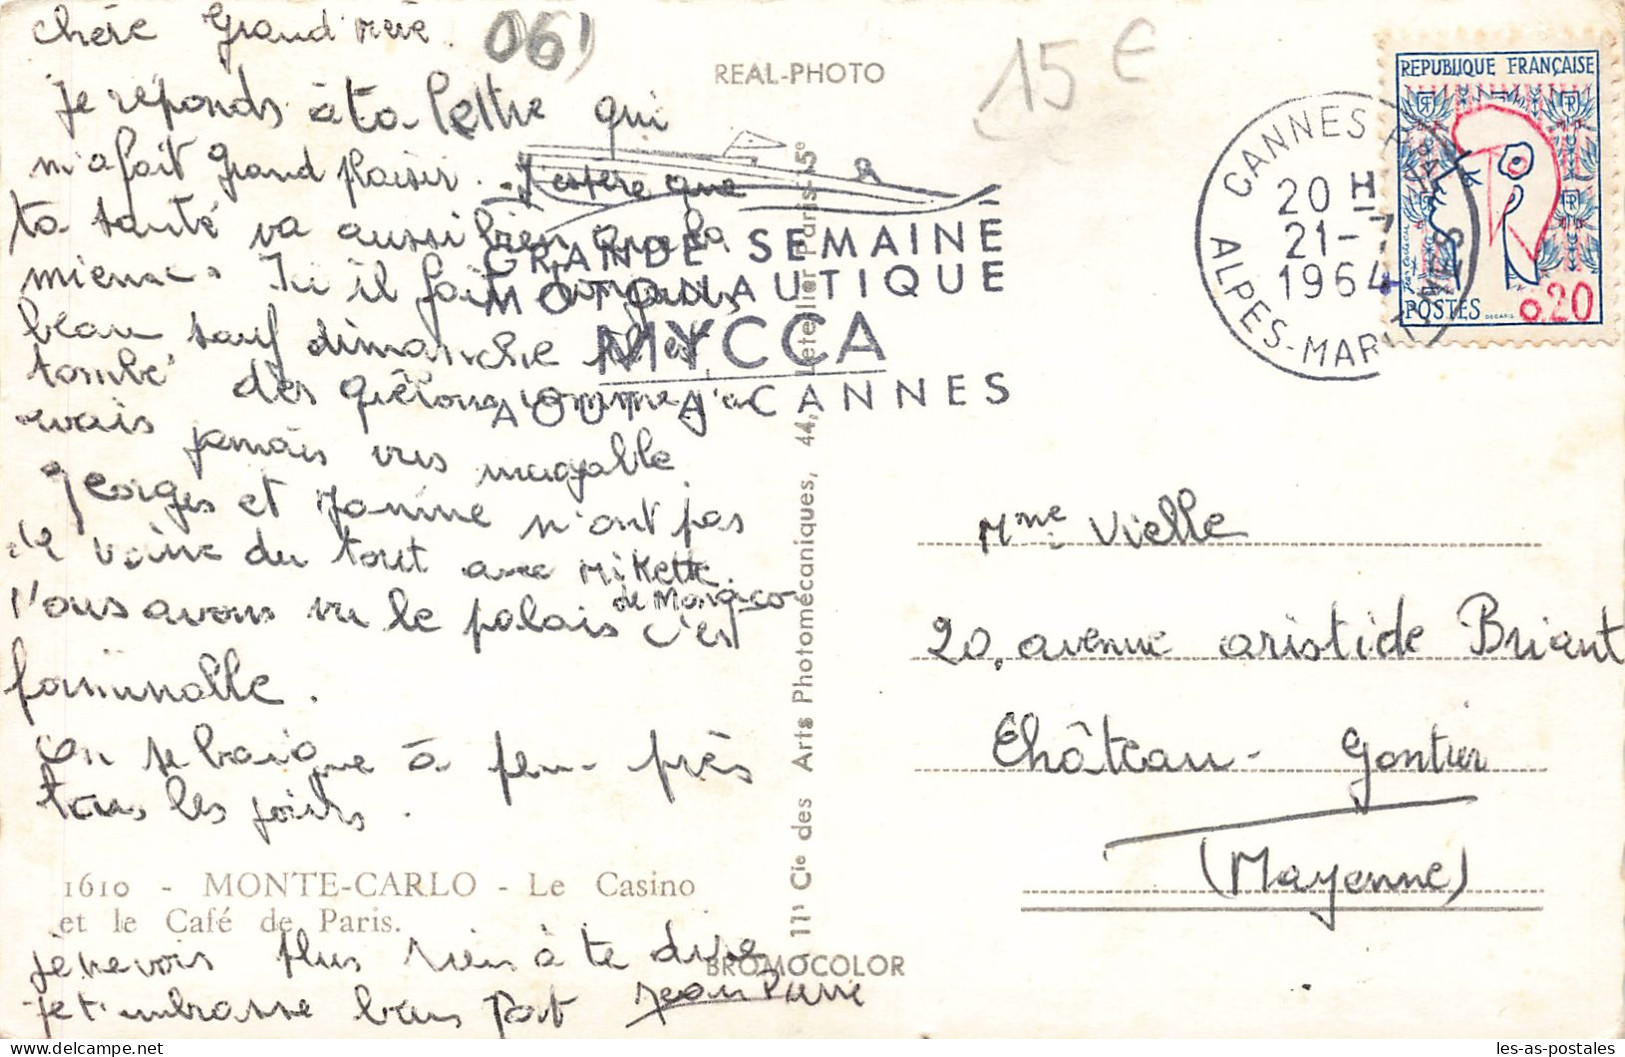 chère Grand'mère.
Je réponds à ta lettre qui
m'a fait grand plaisir. J'espère que
ta santé va aussi bien que la
mienne. Ici il fait toujours
beau sauf dimanche il est
tombé des grêlons comme j'en
avais jamais vus incroyable
Georges et Janine n'ont pas
de veine du tout avec Mikette.
Nous avons vu le palais de Monaco c'est
formidable.
On se baigne à peu près
tous les jours.
1610 - MONTE-CARLO - Le Casino
et le Café de Paris.
je ne vois plus rien à te dire
je t'embrasse bien fort Jean Pierre
06)
REAL-PHOTO
15 €
GRANDE SEMAINE
MOTONAUTIQUE
MYCCA
AOUT A CANNES
11, Cie des Arts Photomécaniques, 44, Paris-15e
BROMOCOLOR
CANNES
20 H
21-7
1964
ALPES-MARITIMES
REPUBLIQUE FRANÇAISE
RF
Jean Cocteau
POSTES
DECARIS
0.20
Mme Vielle
20, avenue aristide Briant
Château-Gontier
(Mayenne)
les-as-postales
delcampe.net